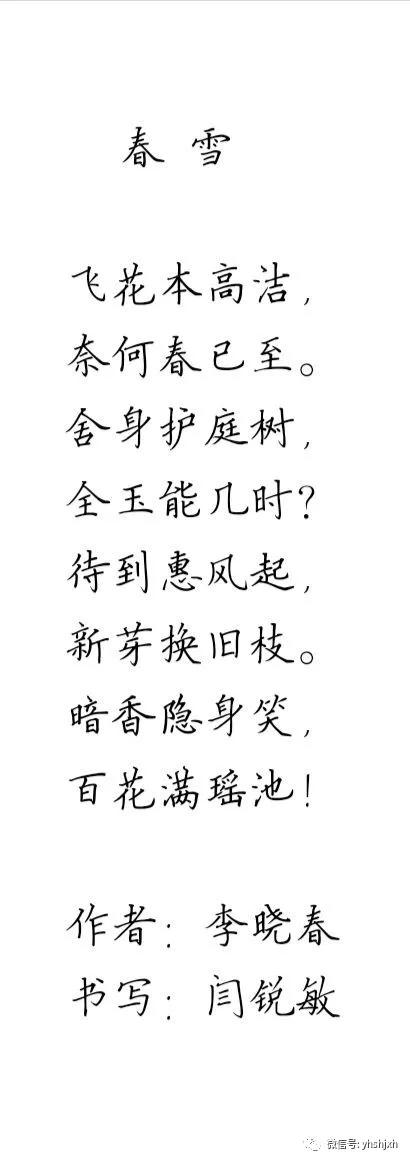 春 雪
飞花本高洁，
奈何春已至。
舍身护庭树，
全玉能几时？
待到惠风起，
新芽换旧枝。
暗香隐身笑，
百花满瑶池！
作者：李晓春
书写：闫锐敏
微信号: yhshjxh